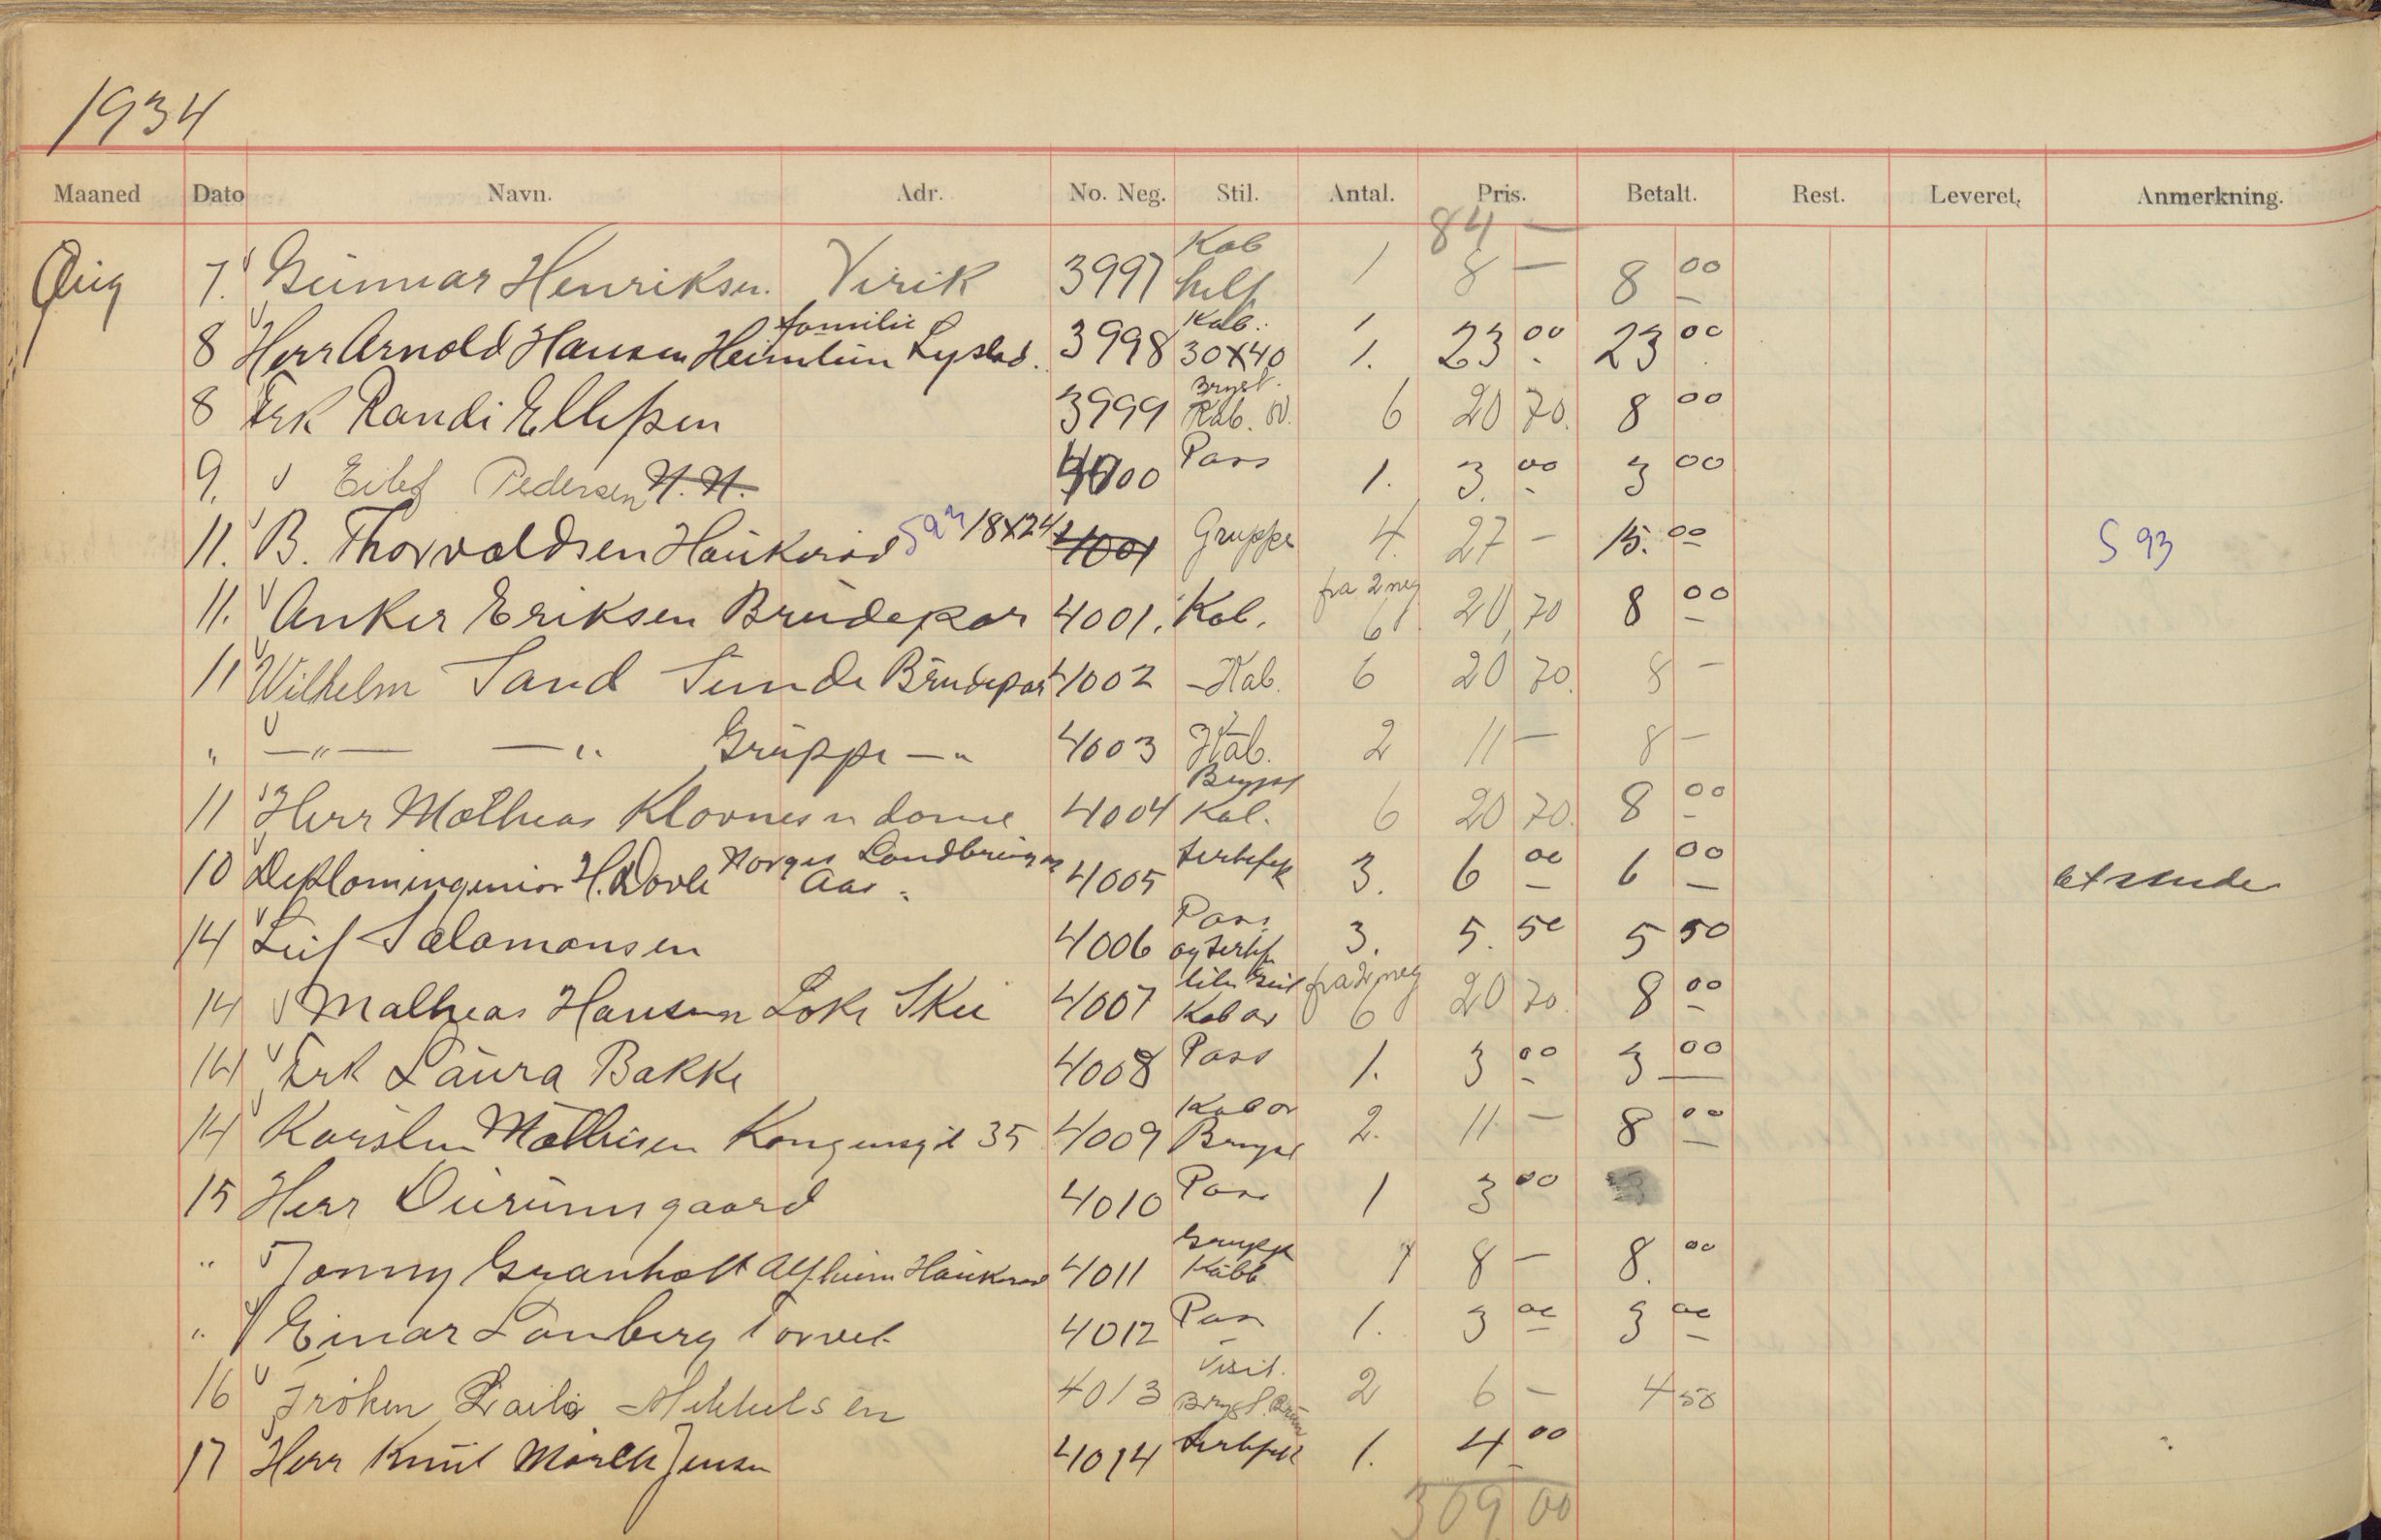 1934
Maaned Dato Navn. Adr. No. Neg. Stil. Antal. Pris. Betalt. Rest. Leveret. Anmerkning.
84 —
Aug 7. Gunnar Henriksen. Virik 3997 Kab helf 1 8 — 8 00
8 Herr Arnold Hansen Heimlün familie Lystad. 3998 Kab. 30X40 1 1. 23 00 23 00
8 Frk Randi Ellefsen 3999 Bryst. Kab. 6 20 70. 8 00
9. Eilef Pedersen N.N. 4000 Pass 1. 3. 00 3 00
11. B. Thorvaldsen Haukerød S93 18X24 4001 Gruppe 4. 27 — 15. 00 S 93
11. Anker Eriksen Brudepar 4001. Kab. fra 2 neg 6 20 70 8 00
11 Wilhelm Sand Sunde Brudepar 4002 Kab. 6 20 70. 8 —
" — " — — " Gruppe — " 4003 Kab. 2 11 — 8 —
11 Herr Mathias Klovnes n dame 4004 Brypst Kab. 6 20 70. 8 00
10 Deplomingeniør H. Dovle Norges Aas. 4005 3. 6 00 6 00
14 Leif Salamonsen 4006 Pass og 3. 5. 50 5 50
14 Mathias Hansen Loke Skee 4007 Kab fra 2 neg 6 20 70. 8 00
14 Frk Laura Bakke 4008 Pass 1. 3 00 3 00
14 Karsten Mathisen Kongensgt 35 4009 Kab Bryst 2. 11 — 8 00
15 Herr 4010 Pass 1 3 00
" Jonny Granholt Alfheim Haukerød 4011 Gruppe Kabb 1 8 — 8. 00
" Einar Lønberg Torvet 4012 Pas 1. 3 00 3 00
16 Frøken Laila Mikkelsen 4013 Visit. Bryst. 2 6 — 4 50
17 Herr Knut Mørch Jensen 4014 1. 4 00
309 00